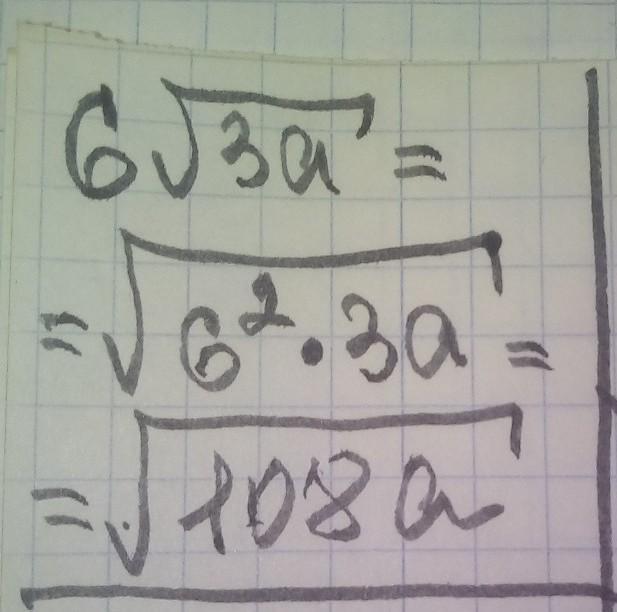 6√3a =
= √6² · 3a =
= √108a